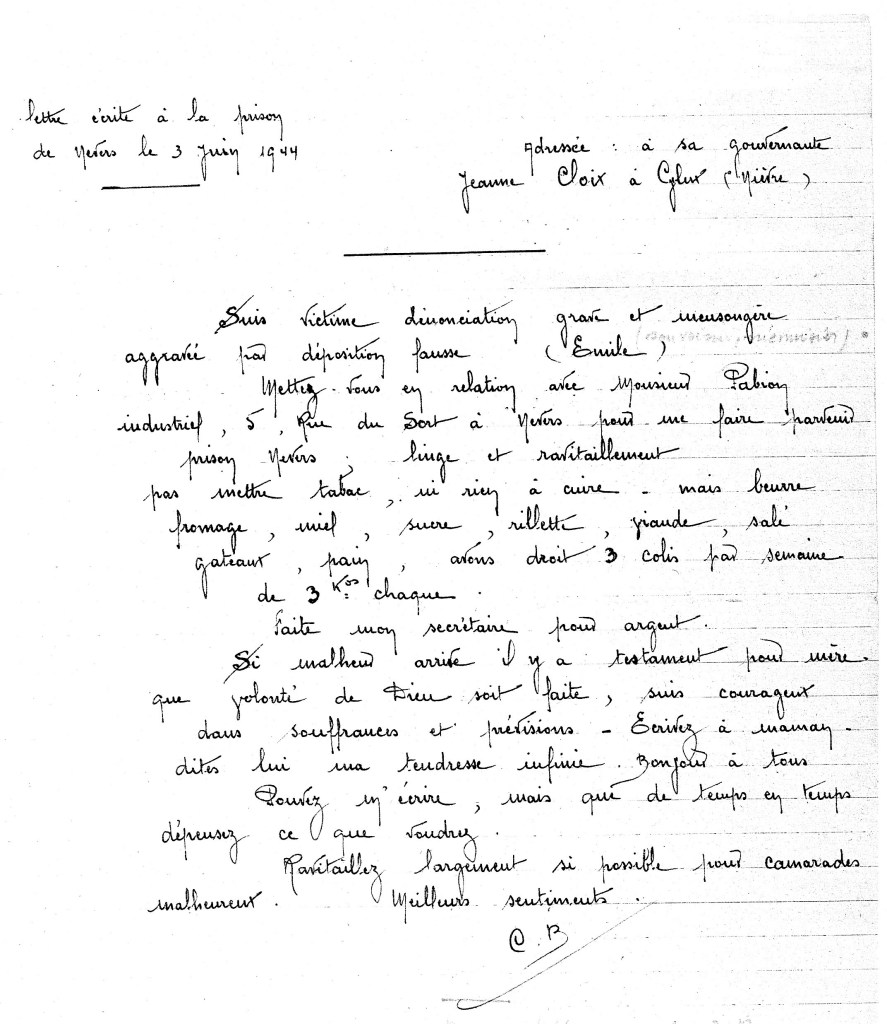 lettre écrite à la prison
de Nevers le 3 Juin 1944
Adressée : à sa gouvernante
Jeanne Cloix à Glux (Nièvre)
Suis victime dénonciation grave et mensongère
aggravée par déposition fausse (Emile)
Mettez-vous en relation avec Monsieur Pabion
industriel, 5, Rue du Sort à Nevers pour me faire parvenir
prison Nevers ; linge et ravitaillement
pas mettre tabac, ni rien à cuire - mais beurre
fromage, miel, sucre, rillette, viande, salé
gateaux, pain, avons droit 3 colis par semaine
de 3 Kos chaque.
Faite mon secrétaire pour argent.
Si malheur arrive il y a testament pour mère.
que volonté de Dieu soit faite, suis courageux
dans souffrances et prévisions - Ecrivez à maman -
dites lui ma tendresse infinie. Bonjour à tous
Pouvez m'écrire, mais que de temps en temps
dépensez ce que voudrez.
Ravitaillez largement si possible pour camarades
malheureux. Meilleurs sentiments.
C.B